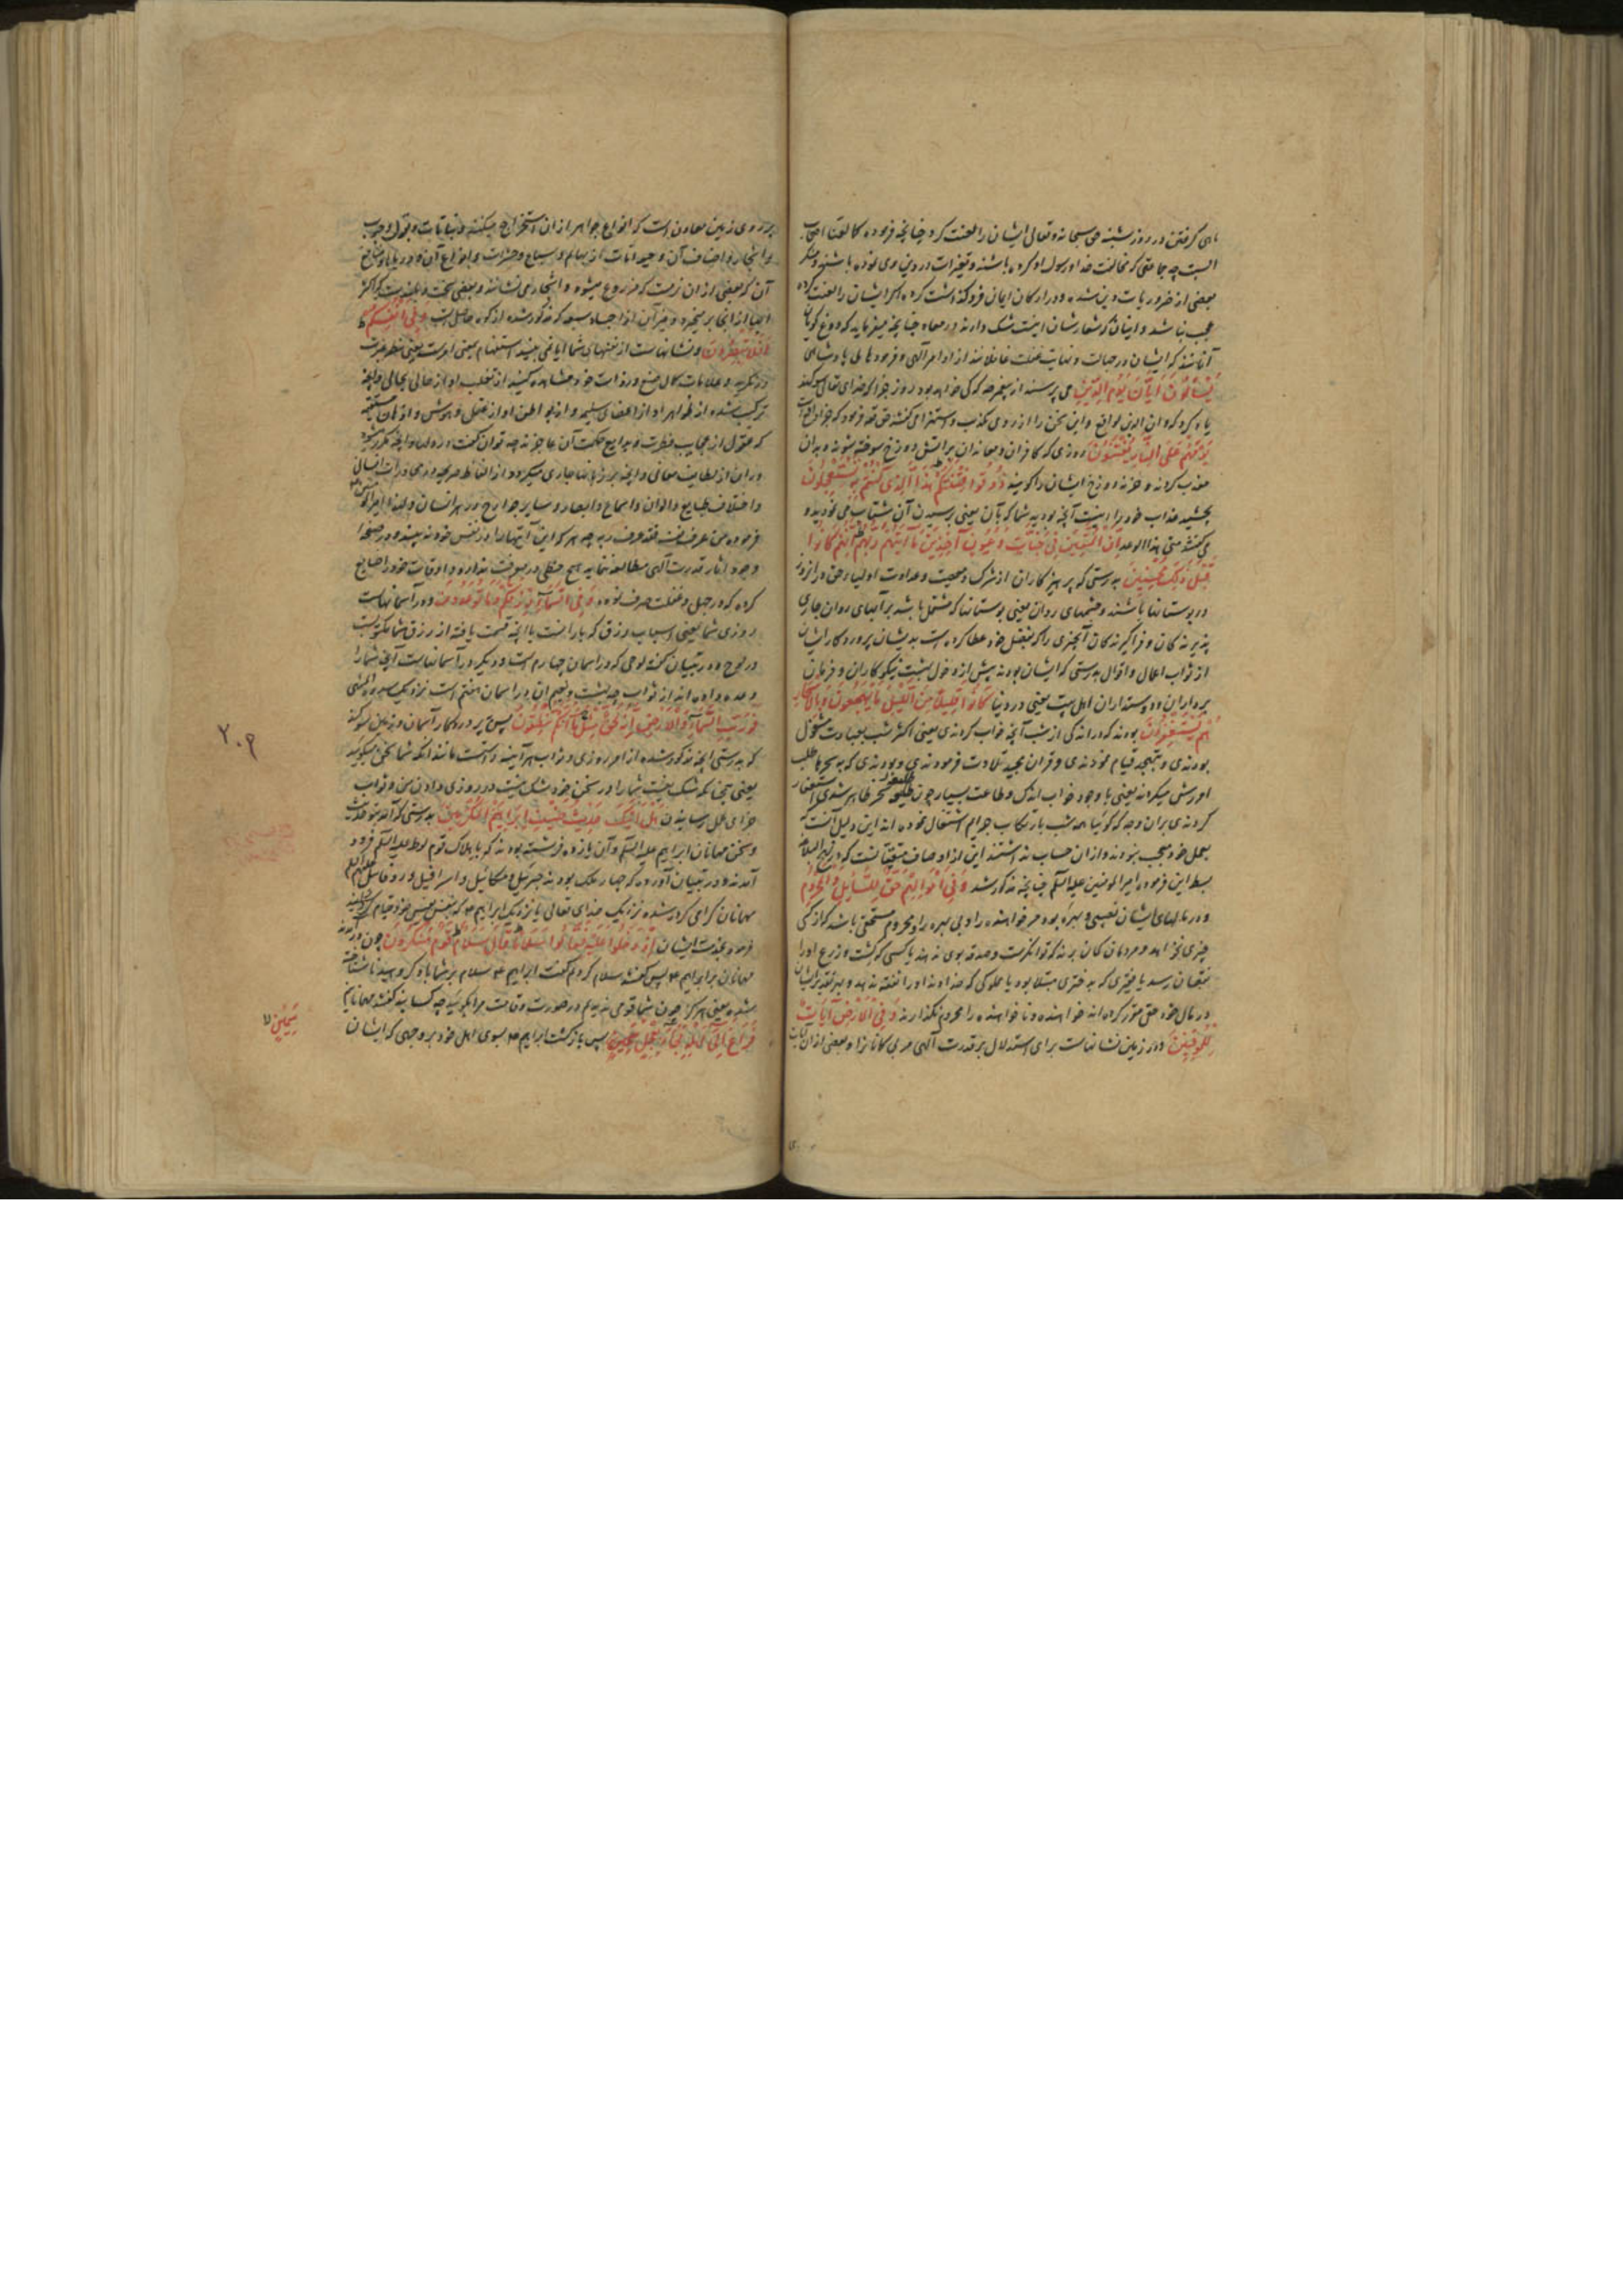 ماهی گرفتن در روز شنبه حق سبحانه و تعالی ایشان را لعنت کرد چنانچه فرموده کما لعنا اصحاب
السبت چه جماعتی که مخالفت خدا و رسول او کرده باشند و تغییرات در دین وی نموده باشند و منکر
بعضی از ضروریات دین شده و در ارکان ایمان فروگذاشت کرده اگر ایشان را لعنت کرده
عجب نباشد و اینان که شعارشان اینست شک دارند در معاد چنانچه میفرماید که دروغ گویان
آنانند که ایشان در جهالت و نهایت غفلت غافلانند از اوامر الهی و فرمودهای پادشاهی
یَسْئَلُونَ أَیَّانَ یَوْمُ الدِّینِ می پرسند از پیغمبر که کی خواهد بود روز جزا که خدای تعالی سوگند
یاد کرد که و ان الدین لواقع و این سخن را از روی تکذیب و استهزا می گفتند حق تعالی فرمود که جزا واقع است
یَوْمَ هُمْ عَلَی النَّارِ یُفْتَنُونَ روزی که کافران و معاندان بر آتش دوزخ سوخته شوند و بدان
معذب گردند و خزنه دوزخ ایشان را گویند ذُوقُوا فِتْنَتَکُمْ هَذَا الَّذِی کُنْتُمْ بِهِ تَسْتَعْجِلُونَ
بچشید عذاب خود را اینست آنچه بودید شما که بآن یعنی برسیدن آن شتاب می نمودید و
می گفتند متی هذا الوعد إِنَّ الْمُتَّقِینَ فِی جَنَّاتٍ وَ عُیُونٍ آخِذِینَ مَا آتَیهُمْ رَبُّهُمْ إِنَّهُمْ کَانُوا
قَبْلَ ذَلِکَ مُحْسِنِینَ بدرستی که پرهیزکاران از شرک و معصیت و عداوت اولیاء حق در آن روز
در بوستانها باشند و چشمهای روان یعنی بوستانها که مشتمل باشد بر آبهای روان جاری
پذیرندگان و فراگیرندگان آنچیزی را که بفضل خود عطا کرده است بدیشان پروردگار ایشان
از ثواب اعمال و اقوال بدرستی که ایشان بودند پیش از دخول بهشت نیکوکاران و فرمان
برداران و دوستداران اهل بیت یعنی در دنیا کَانُوا قَلِیلًا مِنَ اللَّیْلِ مَا یَهْجَعُونَ وَ بِالْأَسْحَارِ
هُمْ یَسْتَغْفِرُونَ بودند که در اندکی از شب آنچه خواب کردندی یعنی اکثر شب بعبادت مشغول
بودندی و بتهجد قیام نمودندی و قرآن مجید تلاوت فرمودندی و بودندی که بسحرها طلب
آمرزش میکردند یعنی با وجود خواب اندک و طاعت بسیار چون سحر ظاهر شدی استغفار
کردندی بر آن وجه که گوئیا همه شب بارتکاب جرایم اشتغال نموده اند این دلیل آنست که
بعمل خود معجب نبودند و از آن حساب نداشتند این از اوصاف متقیانست که در نهج البلاغه
بسط این فرموده امیر المؤمنین علیه السلام چنانچه مذکور شد وَ فِی أَمْوَالِهِمْ حَقٌّ لِلسَّائِلِ وَ الْمَحْرُومِ
و در مالهای ایشان نصیبی و بهره بود مر خواهنده را و بی بهره را و محروم مستحقی باشد که از کسی
چیزی نخواهد و مردمان گمان برند که توانگرست و صدقه بوی ندهند یا کسی که کشت و زرع او را
نقصان رسد یا فقیری که بدختری مبتلا بود یا مملوکی که خداوند او را نفقه ندهد و بهر تقدیر ایشان
در مال خود حقی مقرر کرده اند خواهنده و ناخواهنده را محروم نگذارند وَ فِی الْأَرْضِ آیَاتٌ
لِلْمُوقِنِینَ و در زمین نشانهاست برای استدلال بر قدرت الهی مر بی گمانان را و بعضی از آن آیات
بر روی زمین معادن است که انواع جواهر از آن استخراج میکنند و نباتات و بقول و حبوب
و اشجار و اصناف آن و حیوانات از بهایم و سباع و حشرات و انواع آن و دریاها و منافع
آن که بعضی از آن نرمست که مزروع میشود و اشجار می نشانند و بعضی سخت و بلندیست که اکثر
و غیر آن از اجناد سبعه که مذکور شده از کوه حاصل است وَ فِی أَنْفُسِکُمْ
أَفَلَا تُبْصِرُونَ و نشانهاست از نفسهای شما آیا نمی بینید استفهام بمعنی امرست یعنی بنظر عبرت
درنگرید و علامات کمال صنع در ذات خود مشاهده کنید از تقلب او از حالی بحالی و آنچه
ترکیب شده از ظواهر او از اعضای سلیمه و از بواطن او از عقل و هوش و اذهان مستقیمه
که عقول از عجایب فطرت و بدایع حکمت آن عاجزند چه توان گفت در دلها و آنچه مذکور شود
در آن از لطایف معانی و آنچه بر زبانها جاری میگردد از الفاظ فصیحه و محاورات انسانی
و اختلاف طبایع و الوان و اسماع و ابصار و سایر جوارح در هر انسان و لهذا امیر المؤمنین
فرموده من عرف نفسه فقد عرف ربه چه هر که این آیتها را در نفس خود نه بیند و در صفحه
وجود آثار قدرت الهی مطالعه ننماید هیچ حظی در معرفت ندارد و اوقات خود را ضایع
کرده که در جهل و غفلت صرف نموده وَ فِی السَّمَاءِ رِزْقُکُمْ وَ مَا تُوعَدُونَ و در آسمانهاست
روزی شما یعنی اسباب رزق که بارانست یا آنچه قسمت یافته از رزق شما مکتوبست
در لوح و در تبیان گفته لوحی که در آسمان چهارم است و دیگر در آسمانهاست آنچه شما را
وعده داده اند از ثواب چه بهشت و نعیم آن در آسمان هفتم است نزدیک سدرة المنتهی
فَوَ رَبِّ السَّمَاءِ وَ الْأَرْضِ إِنَّهُ لَحَقٌّ مِثْلَ مَا أَنَّکُمْ تَنْطِقُونَ پس بپروردگار آسمان و زمین سوگند
که بدرستی آنچه مذکور شده از امر روزی و ثواب هر آینه راستست مانند آنکه شما سخن میگویید
یعنی همچنانکه شک نیست شما را در سخن خود شک نیست در روزی دادن من و ثواب
جزای عمل رسانیدن هَلْ أَتَیکَ حَدِیثُ ضَیْفِ إِبْرَاهِیمَ الْمُکْرَمِینَ بدرستی که آمد بتو حدیث
و سخن مهمانان ابراهیم علیه السلام و آن یازده فرشته بودند که بهلاک قوم لوط علیه السلام فرود
آمدند و در تبیان آورده که چهار ملک بودند جبرئیل و میکائیل و اسرافیل و دردفائیل علیهم السلام
مهمانان گرامی کرده شده نزدیک خدای تعالی یا نزدیک ابراهیم ع که بنفس نفیس خود قیام
فرموده بخدمت ایشان إِذْ دَخَلُوا عَلَیْهِ فَقَالُوا سَلَامًا قَالَ سَلَامٌ قَوْمٌ مُنْکَرُونَ چون درآمدند
مهمانان بر ابراهیم ع پس گفتند سلام کردم گفت ابراهیم ع سلام بر شما باد گروهید ناشناخته
شده یعنی هرگز چون شما قومی ندیدم در صورت و قامت مرا بگوئید چه کسانید گفتند مهمانانیم
فَرَاغَ إِلَی أَهْلِهِ فَجَاءَ بِعِجْلٍ سَمِینٍ پس بازگشت ابراهیم ع بسوی اهل خود بر وجهی که ایشان
۲۰۹
سَمِینٍ